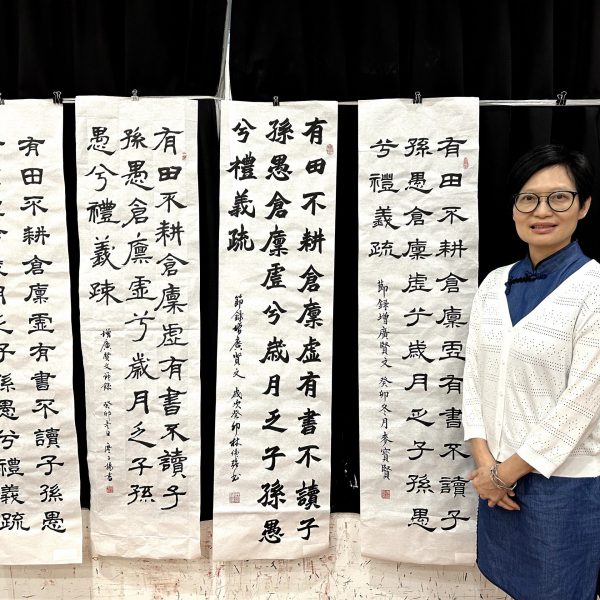 有田不耕倉廩虛有書不讀子
孫愚倉廩虛兮歲月乏子孫愚
兮禮義疏
節錄增廣賢文 癸卯冬月麥寶賢
有田不耕倉廩虛有書不讀子
孫愚倉廩虛兮歲月乏子孫愚
兮禮義疏
節錄增廣賢文 歲次癸卯 林偉
有田不耕倉廩虛有書不讀子
孫愚倉廩虛兮歲月乏子孫
愚兮禮義疎
增廣賢文節錄 癸卯冬日
有田不耕倉廩虛有書不讀子孫愚
月乏子孫愚兮禮義疏